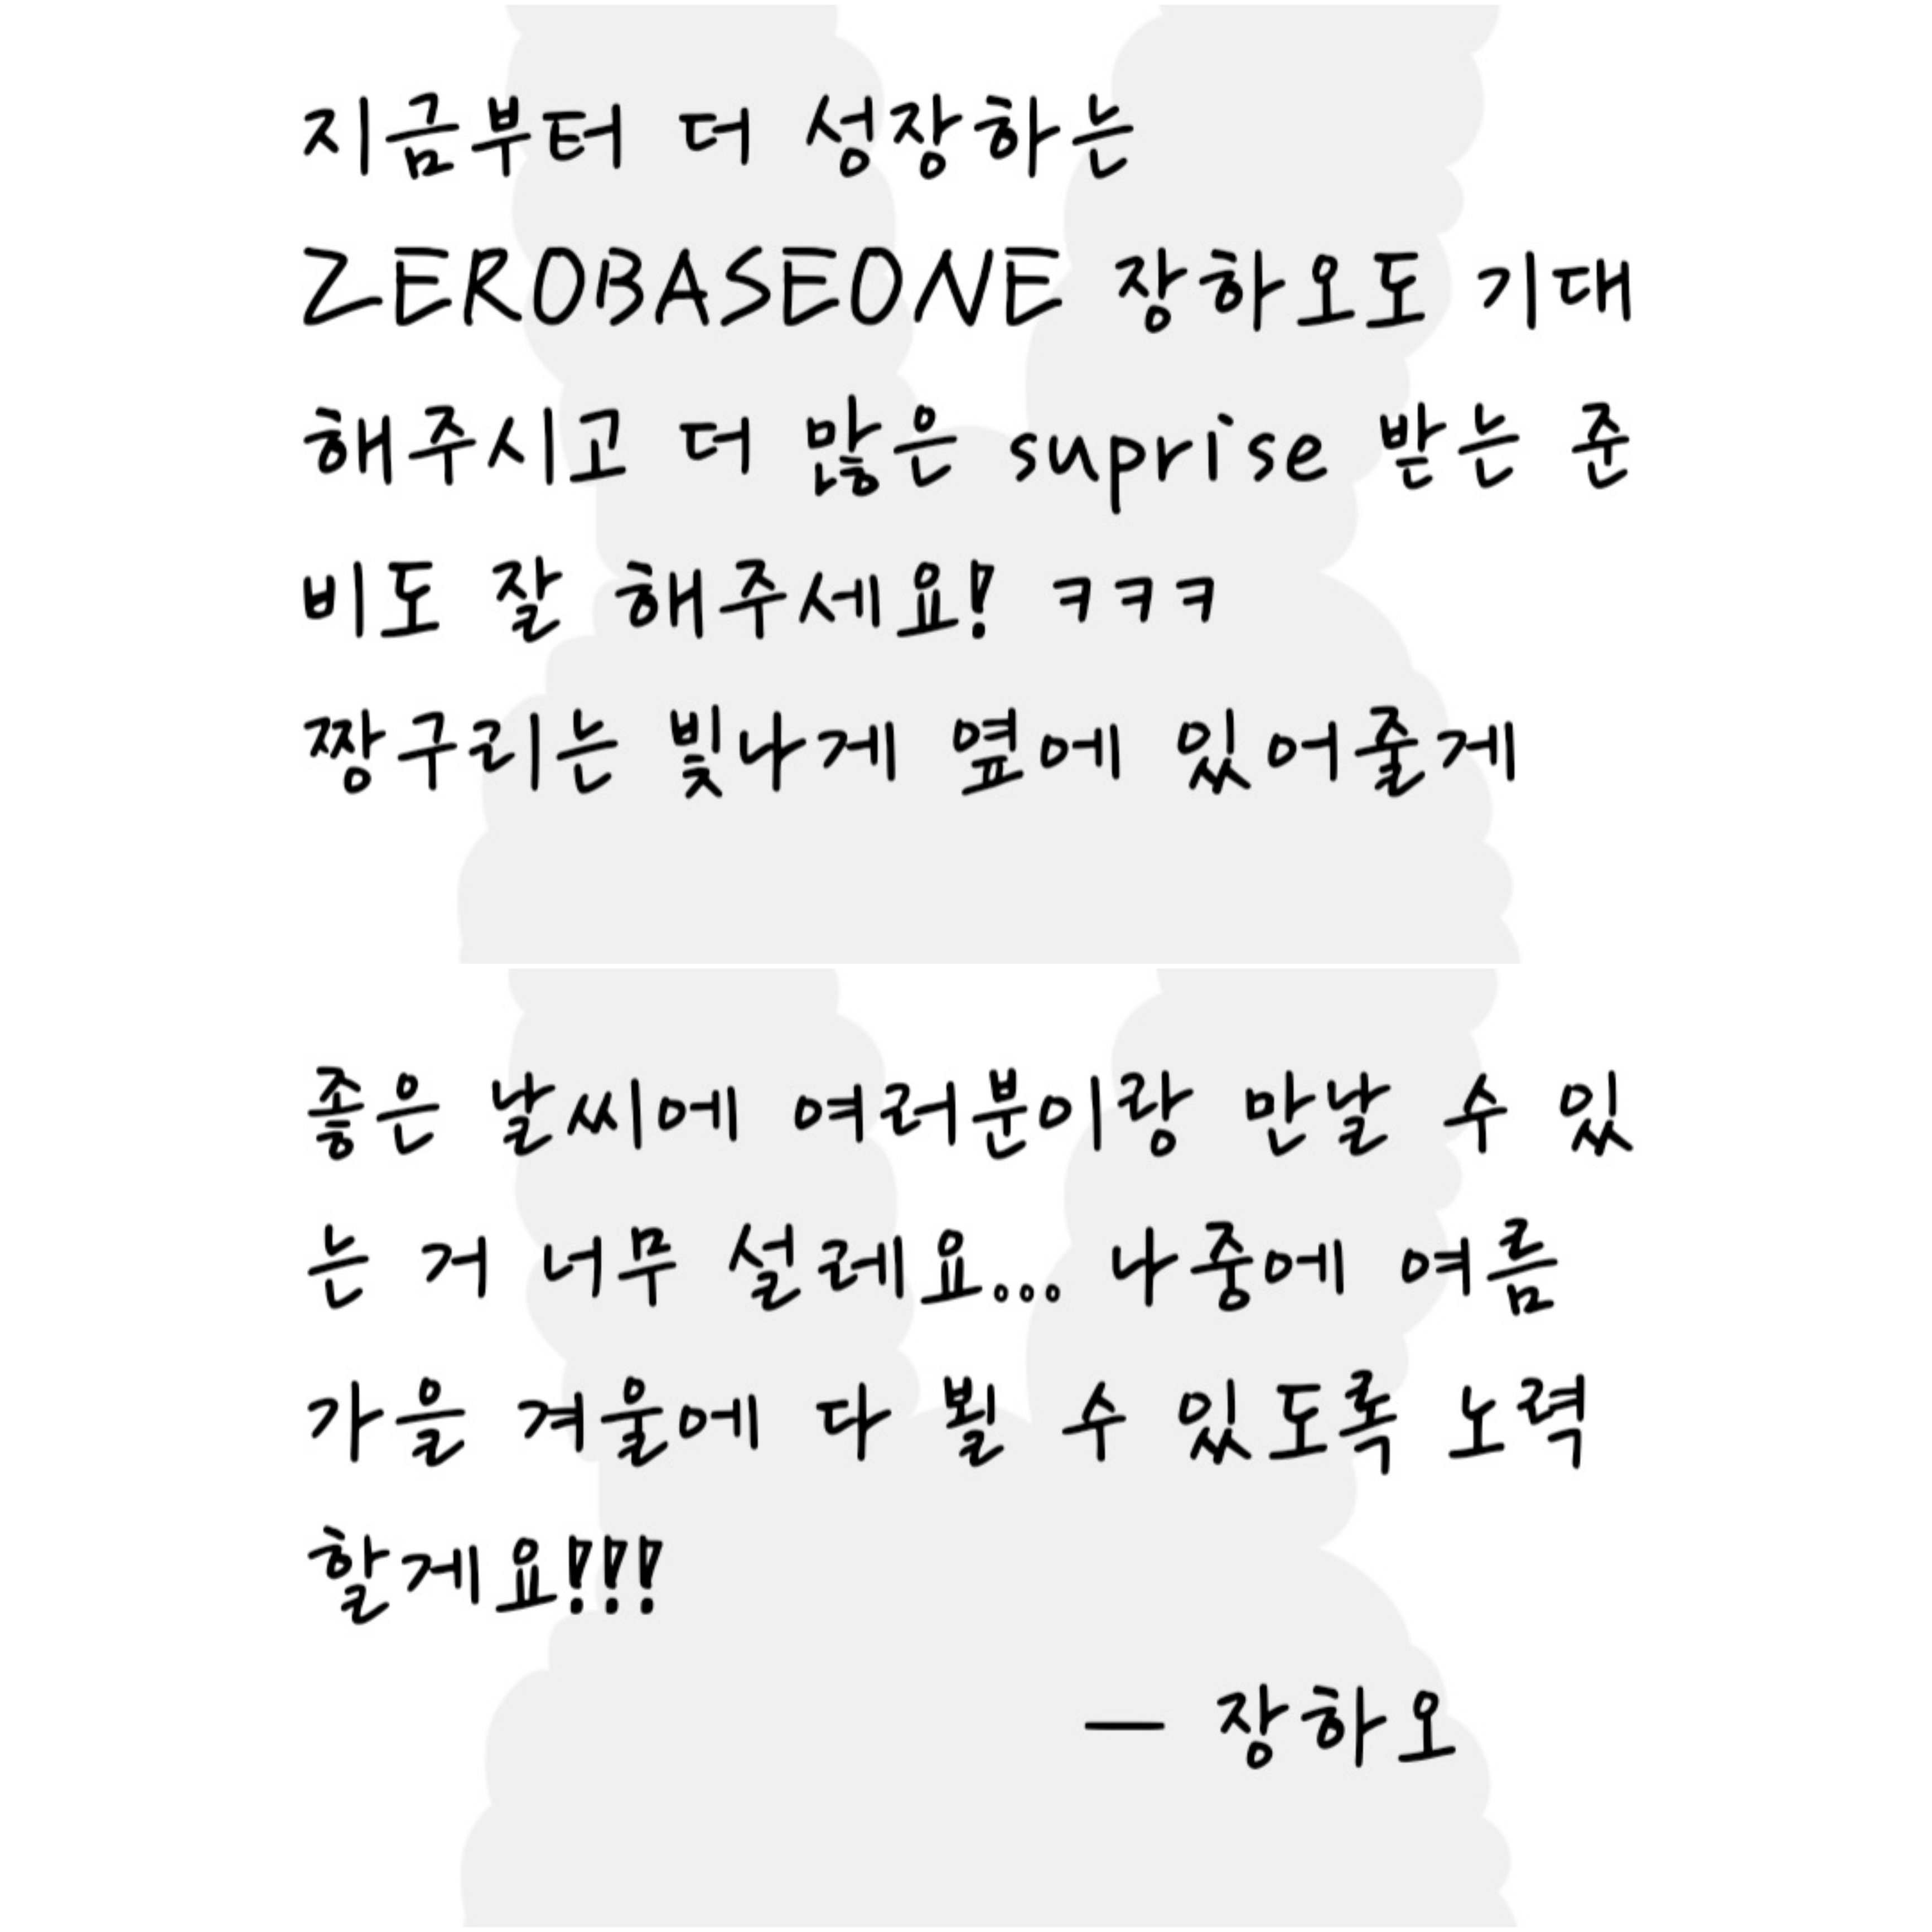 지금부터 더 성장하는
ZEROBASEONE 장하오도 기대
해주시고 더 많은 suprise 받는 준
비도 잘 해주세요! ㅋㅋㅋ
짱구리는 빛나게 옆에 있어줄게
좋은 날씨에 여러분이랑 만날 수 있
는 거 너무 설레요... 나중에 여름
가을 겨울에 다 뵐 수 있도록 노력
할게요!!!
— 장하오